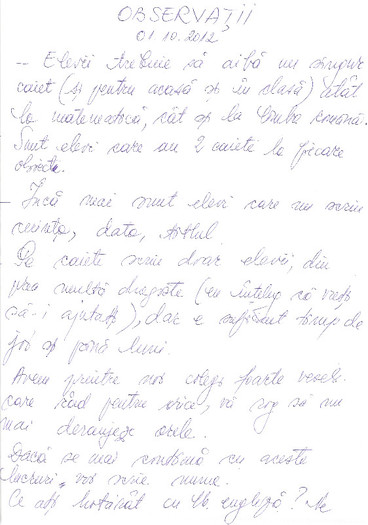 OBSERVAȚII
01.10.2012
-- Elevii trebuie să aibă un singur
caiet (și pentru acasă și în clasă) atât
la matematică, cât și la limba română.
Sunt elevi care au 2 caiete la fiecare
obiecte.
- Încă mai sunt elevi care nu scriu
cerința, data, titlul.
Pe caiete scriu doar elevii, din
prea multă dragoste (eu înțeleg că vreți
să-i ajutați), dar e suficient timp de
joi și până luni.
Avem printre noi colegi foarte veseli
care râd pentru orice, vă rog să nu
mai deranjeze orele.
Dacă se mai continuă cu aceste
lucruri, voi scrie nume.
Ce ați hotărât cu lb. engleză? Me